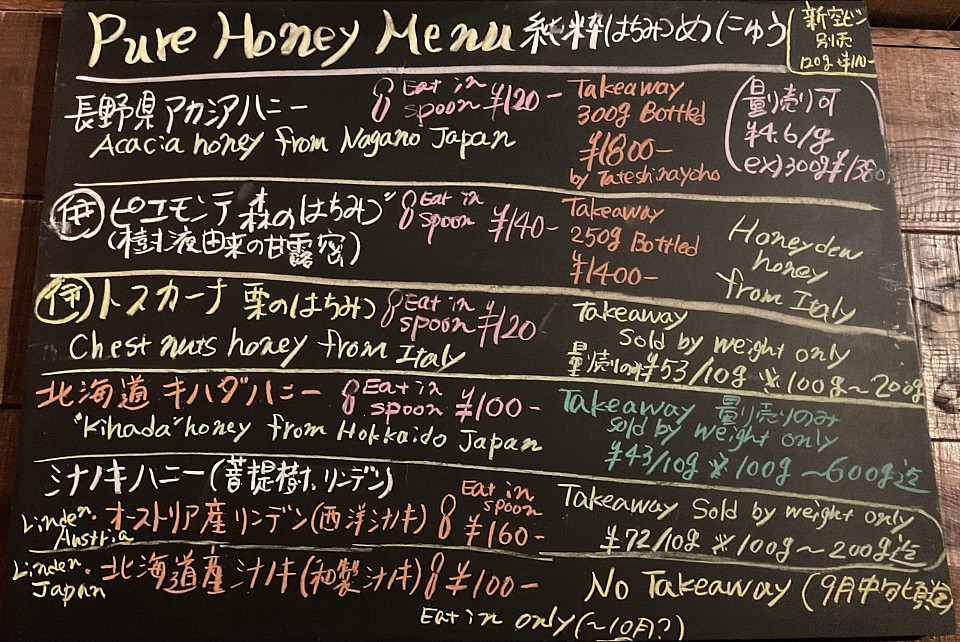 Pure Honey Menu 純粋はちみつめにゅう
新空ビン
別売
120g ¥110-
長野県アカシアハニー
Acacia honey from Nagano Japan
Eat in
spoon ¥120-
Takeaway
300g Bottled
¥1800-
by Tateshinayoho
量り売り可
¥4.6/g
ex)300g¥1380
伊 ピエモンテ森のはちみつ
(樹液由来の甘露蜜)
Eat in
spoon ¥140-
Takeaway
250g Bottled
¥1400-
Honeydew
honey
from Italy
伊 トスカーナ 栗のはちみつ
Chestnuts honey from Italy
Eat in
spoon ¥120
Takeaway
Sold by weight only
量り売りのみ¥53/10g ※100g〜200g
北海道 キハダハニー
"Kihada"honey from Hokkaido Japan
Eat in
spoon ¥100-
Takeaway 量り売りのみ
sold by weight only
¥43/10g ※100g〜600g迄
シナノキハニー(菩提樹、リンデン)
Linden. オーストリア産リンデン(西洋シナノキ)
Austria
Eat in
spoon
¥160-
Takeaway Sold by weight only
¥72/10g ※100g〜200g迄
Linden. 北海道産シナノキ(和製シナノキ) ¥100-
Japan
No Takeaway (9月中旬頃迄)
Eat in only(〜10月?)